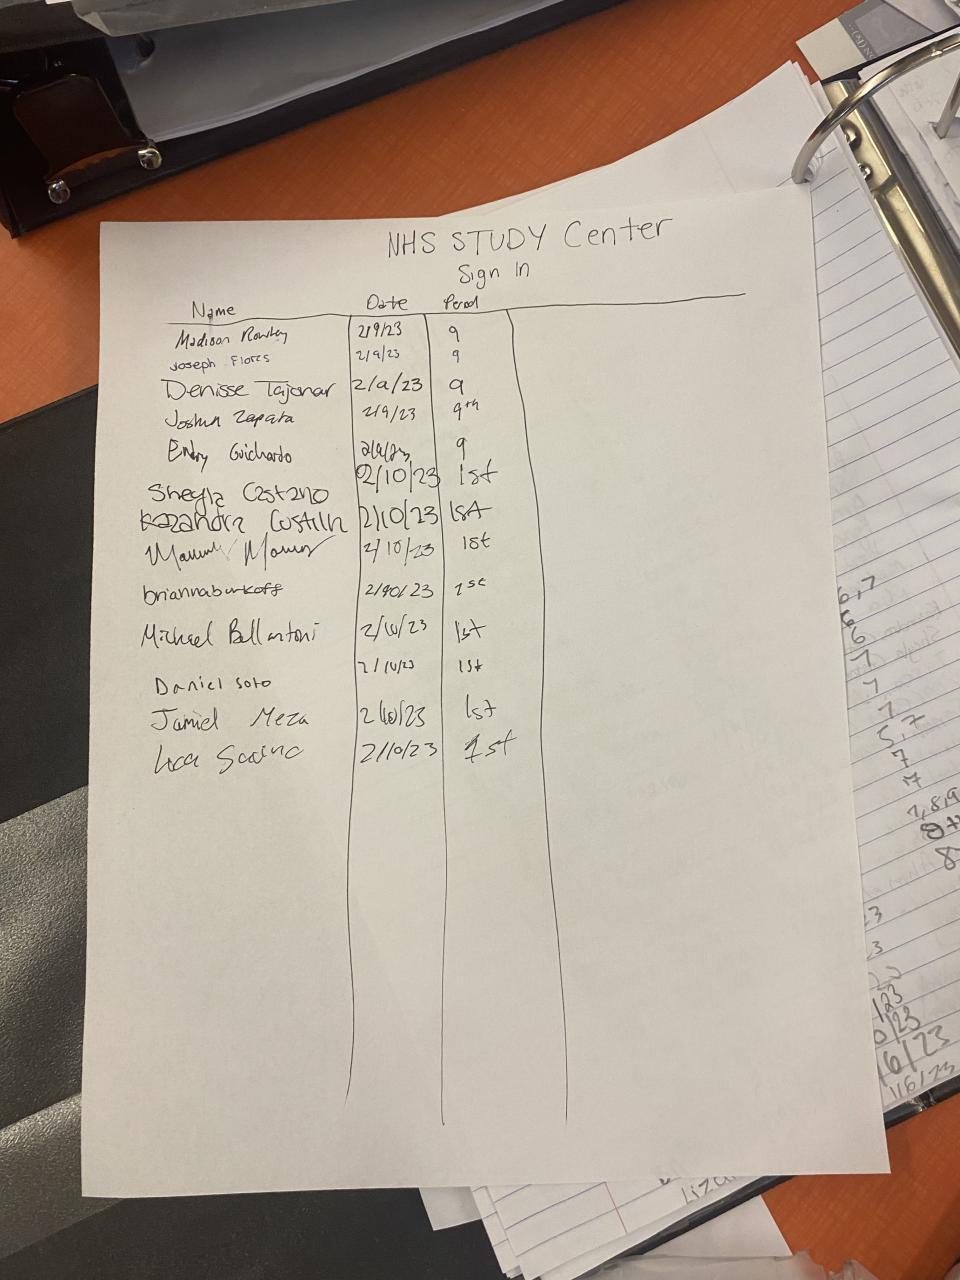 NHS STUDY Center
Sign In
Name Date Period
Madison Rowley 2/9/23 9
Joseph Flores 2/9/23 9
Denisse Tajonar 2/9/23 9
Joshua Zapata 2/9/23 9th
Endry Guichardo 2/9/23 9
Sheyla Castano 2/10/23 1st
Kazandra 2/10/23 1st
2/10/23 1st
briannaburkoff 2/10/23 1st
Michael Bellantoni 2/10/23 1st
Daniel Soto 2/10/23 1st
Jamiel Meza 2/10/23 1st
Luca 2/10/23 1st
6,7
6
7
7
7
5,7
7
7
7,8,9
8
23
3
/23
0/23
16/23
116/23